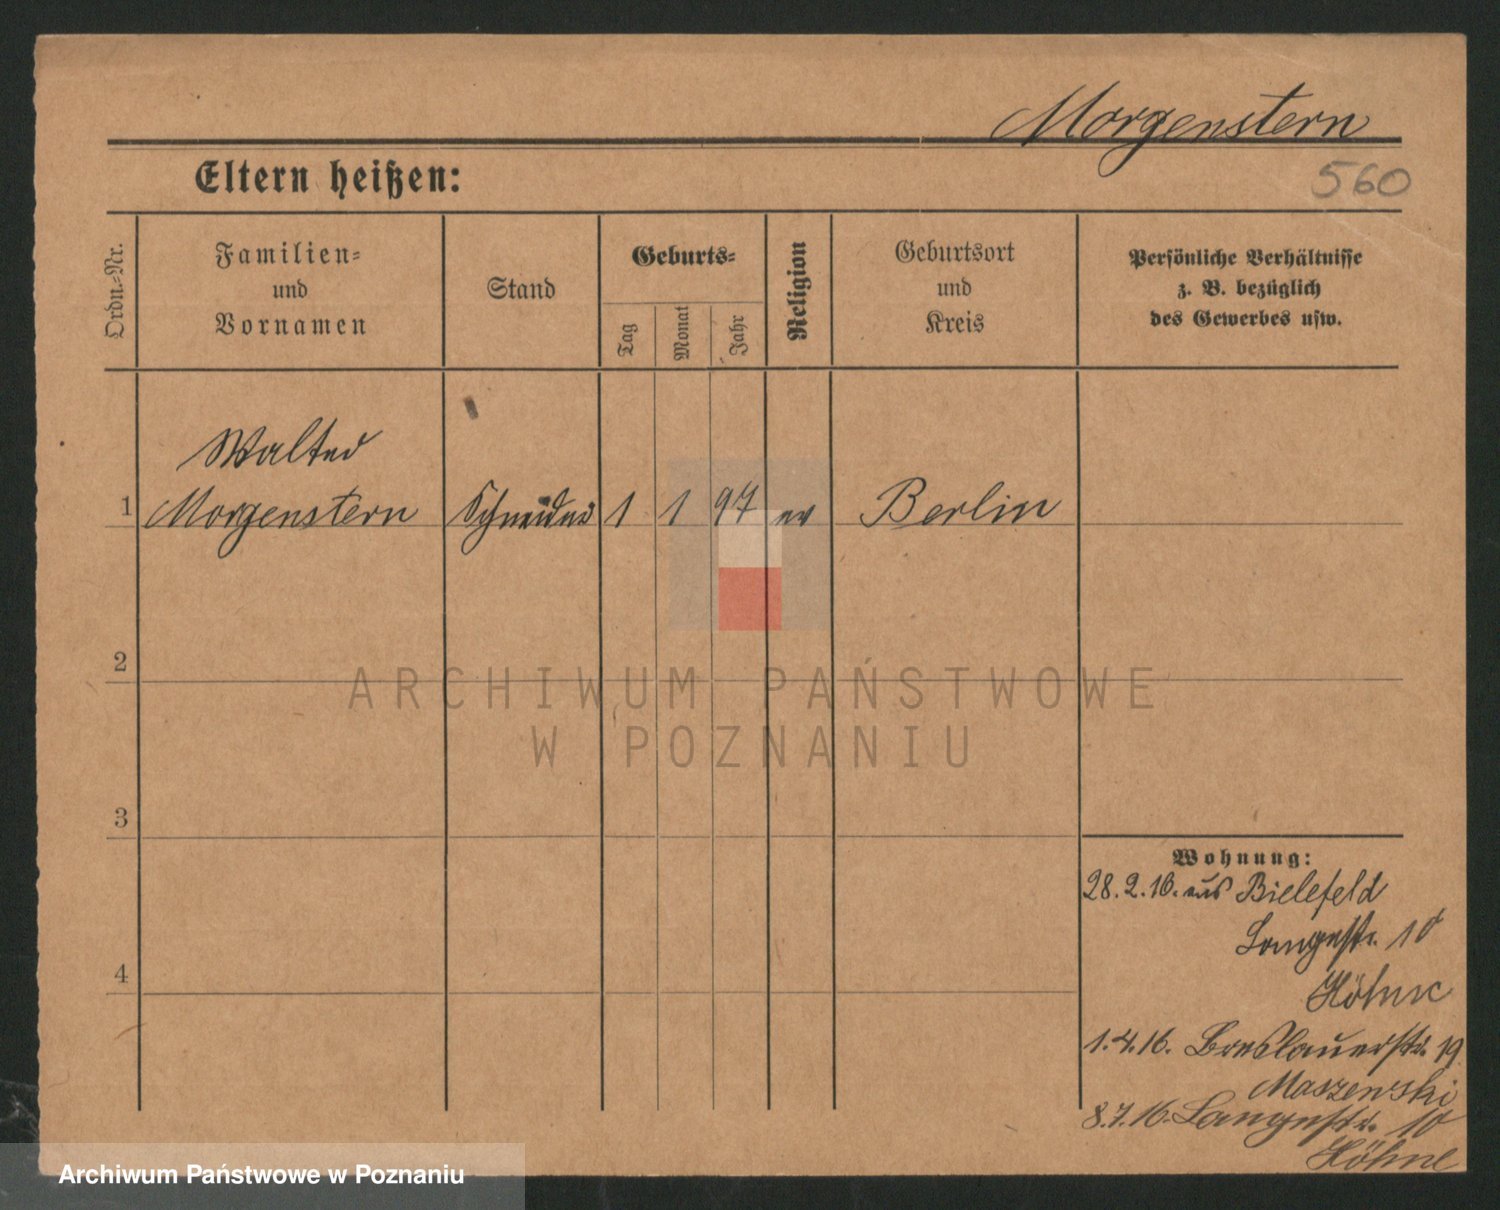 Morgenstern
560
Eltern heißen:
Ordn.-Nr.
Familien-
und
Vornamen
Stand
Geburts-
Tag
Monat
Jahr
Religion
Geburtsort
und
Kreis
Persönliche Verhältnisse
z. B. bezüglich
des Gewerbes usw.
Walter
1 Morgenstern Schneider 1 1 97 ev Berlin
2
3
4
ARCHIWUM PAŃSTWOWE
W POZNANIU
Wohnung:
28.2.16. aus Bielefeld
Langestr. 10
Höhne
1.4.16. Breslauerstr. 19
Maszewski
8.7.16. Langestr. 10
Höhne
Archiwum Państwowe w Poznaniu